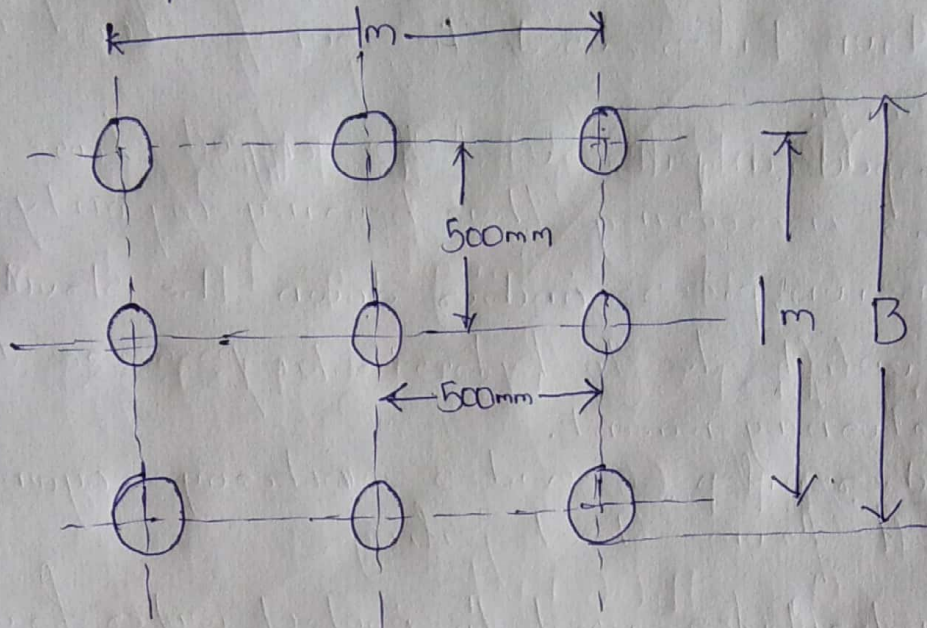 1m
500mm
1m
B
500mm